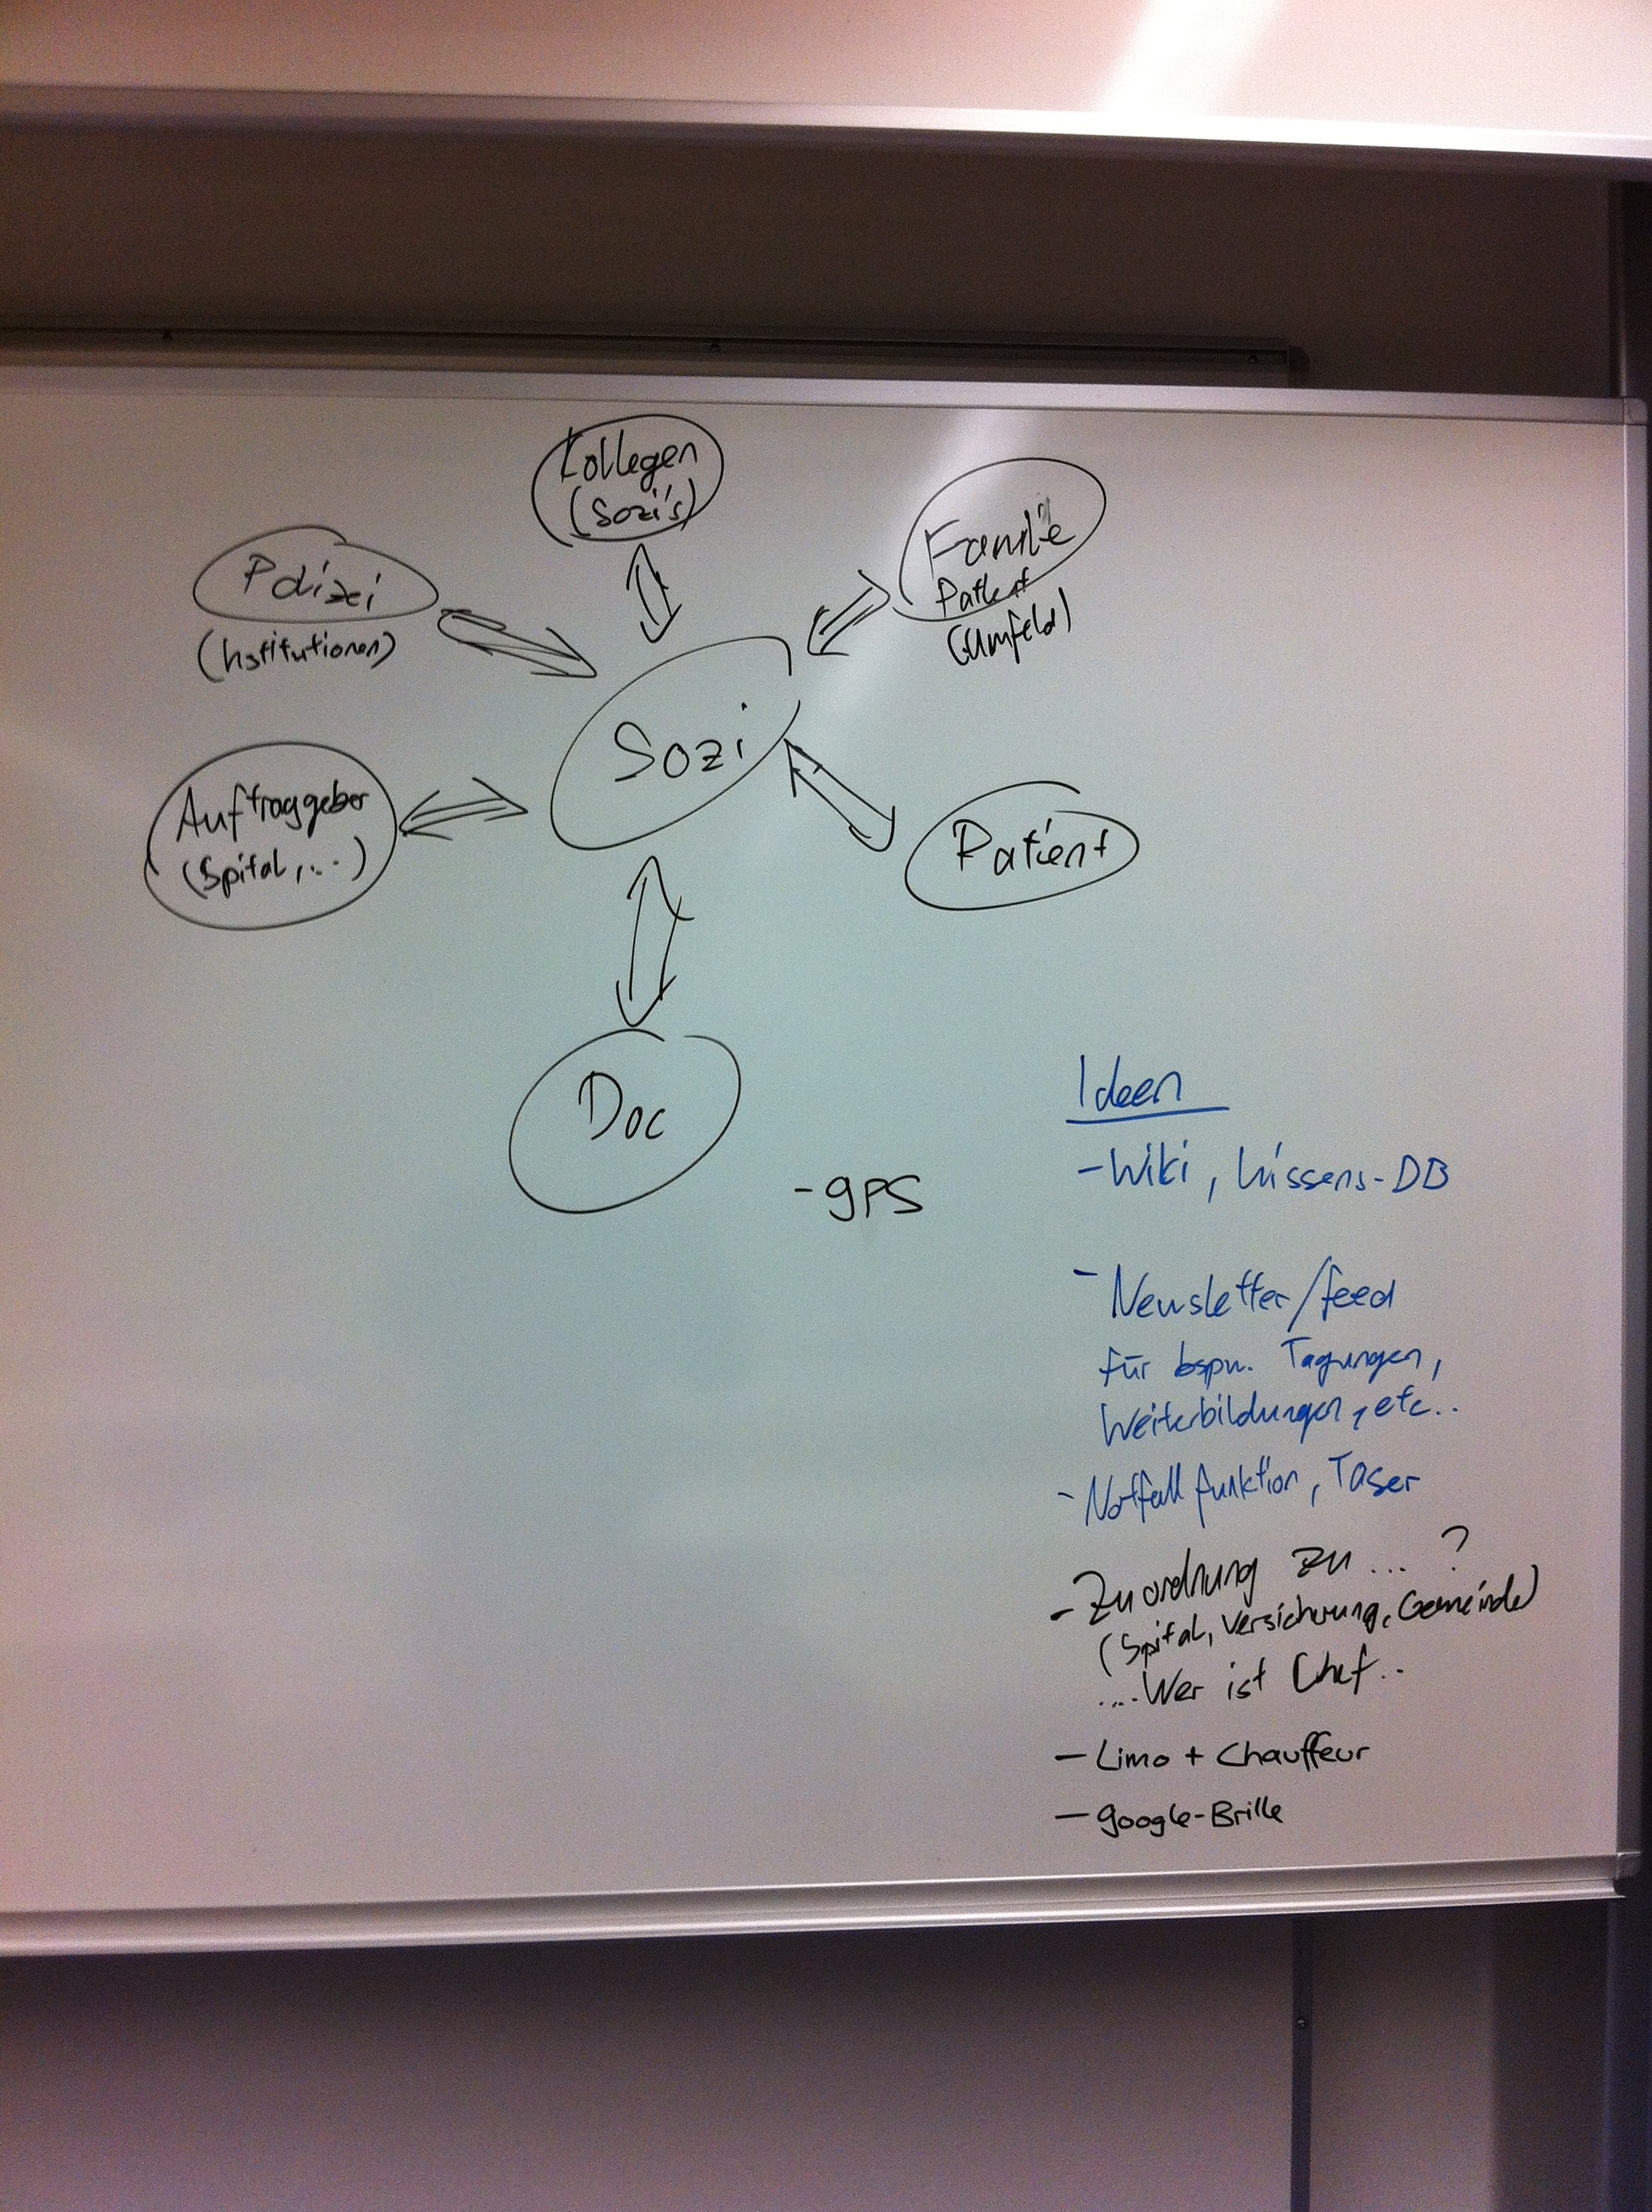 Kollegen
(Sozi's)
Familie
Patient
(Umfeld)
Polizei
(Institutionen)
Sozi
Auftraggeber
(Spital, ...)
Patient
Doc
- GPS
Ideen
- Wiki, Wissens-DB
- Newsletter/feed
für bspw. Tagungen,
Weiterbildungen, etc..
- Notfallfunktion, Taser
- Zuordnung zu ... ?
(Spital, Versicherung, Gemeinde)
....Wer ist Chef..
- Limo + Chauffeur
- google-Brille